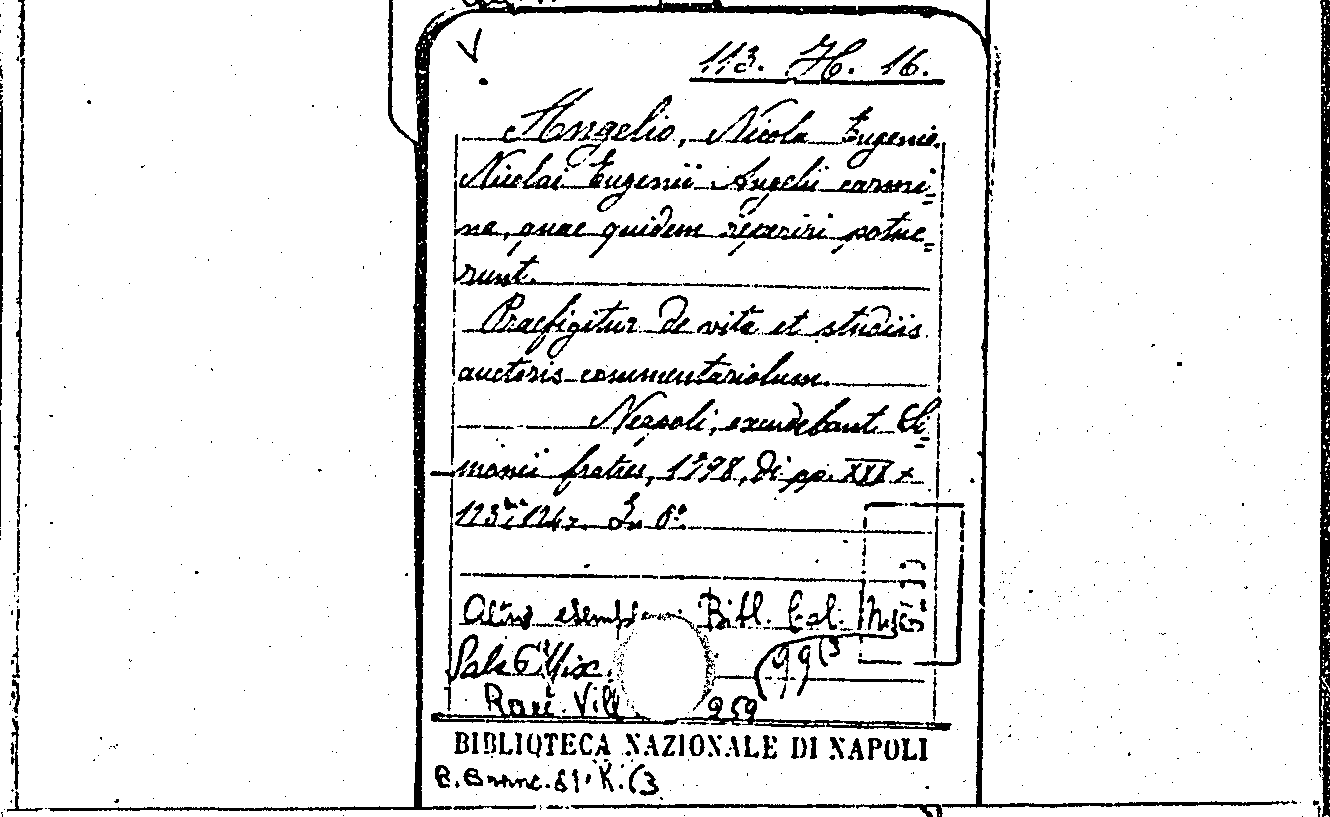 V
113. H. 16.
Angelio, Nicola Eugenio.
Nicolai Eugenii Angelii carmi=
na, quae quidem reperiri potue=
runt.
Praefigitur de vita et studiis
auctoris commentariolum.
Neapoli, excudebant Si=
monii fratres, 1798, di pp. XXX +
In 8°
Altro Bibl. Col.
Sala
Racc. Vill 259
BIBLIOTECA NAZIONALE DI NAPOLI
B. Branc. K.